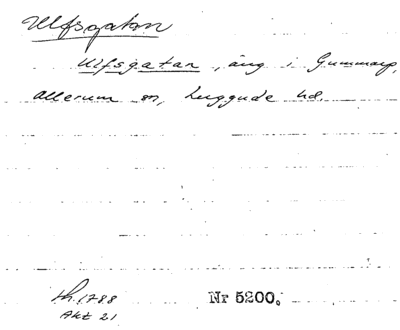 Ulfsgatan
Ulfsgatan, äng i Gummarp,
Allerum sn, Luggude hd.
Lh. 1788 Nr 5200.
Akt 21